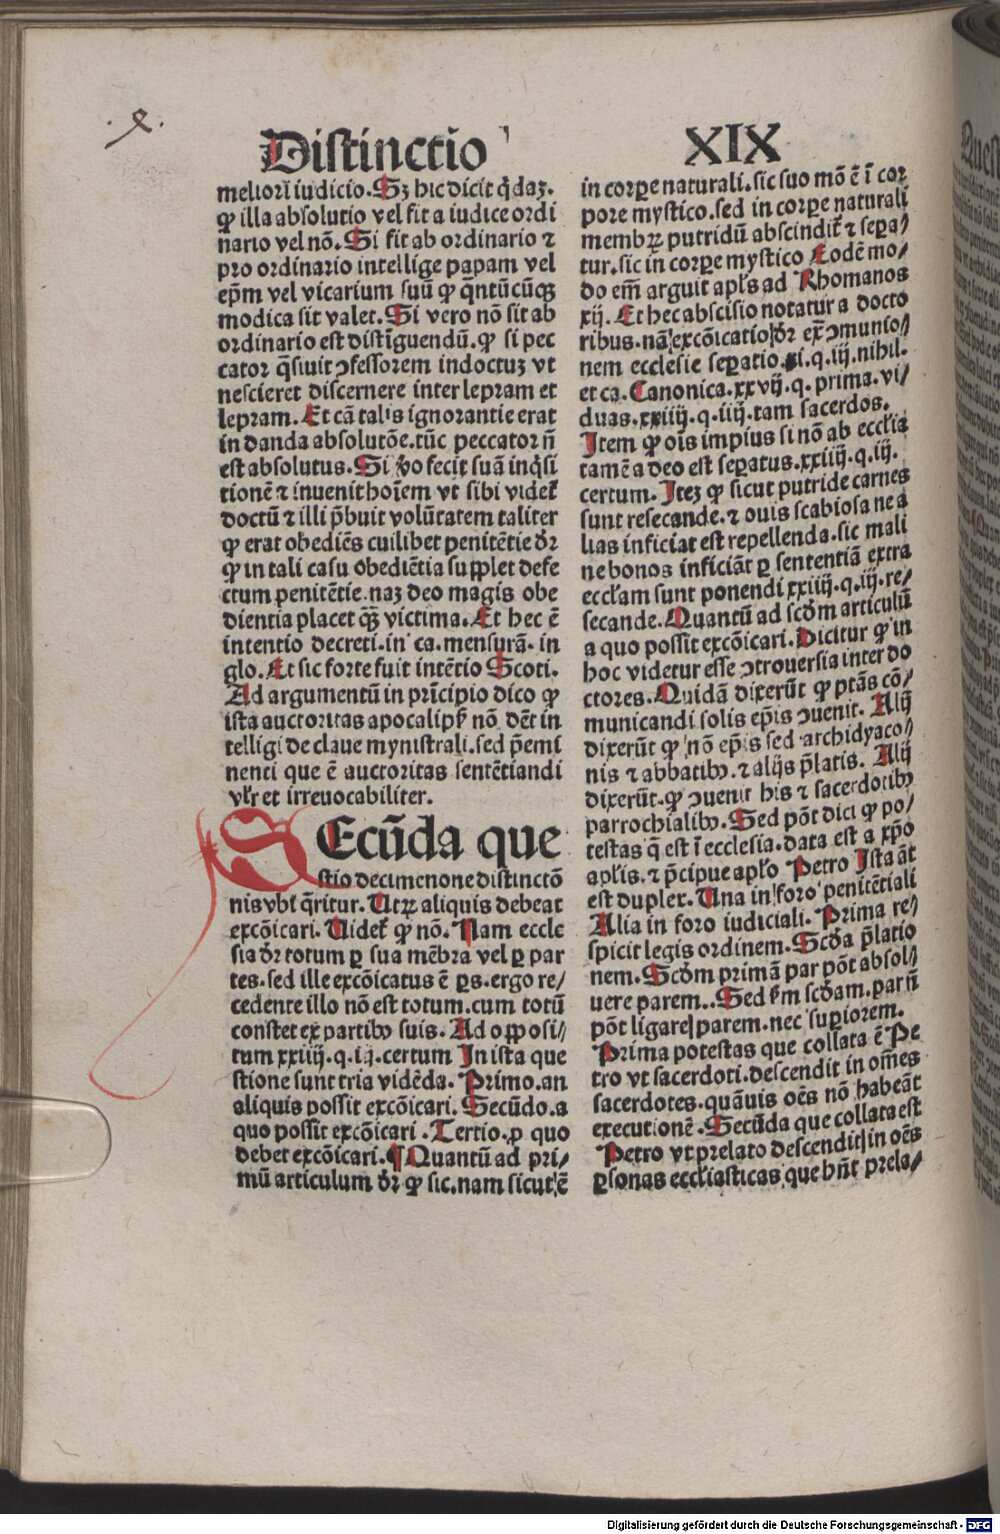 Distinctio XIX
meliori iudicio. Sꝫ hic dicit q̄daꝫ.
ꝙ illa absolutio vel fit a iudice ordi
nario vel nō. Si fit ab ordinario ⁊
pro ordinario intellige papam vel
ep̄m vel vicarium suū ꝙ q̄ntūcūqꝫ
modica sit valet. Si vero nō sit ab
ordinario est distīguendū. ꝙ si pec
cator q̄siuit ↄfessorem indoctuꝫ vt
nesciret discernere inter lepram et
lepram. Et cā talis ignorantie erat
in danda absolutōe. tūc peccator n̄
est absolutus. Si ꝟo fecit suā inq̄si
tionē ⁊ inuenit hoīem vt sibi videt̄
doctū ⁊ illi p̄buit volūtatem taliter
ꝙ erat obediēs cuilibet penitētie dr̄
ꝙ in tali casu obediētia supplet defe
ctum penitētie. naꝫ deo magis obe
dientia placet qꝫ victima. Et hec ē
intentio decreti. in ca. mensurā. in
glo. Et sic forte fuit intētio Scoti.
Ad argumentū in prīcipio dico ꝙ
ista auctoritas apocalipẜ nō dēt in
telligi de claue mynistrali. sed p̄emi
nenti que ē auctoritas sentētiandi
vlr̄ et irreuocabiliter.
SEcūda que
stio decimenone distinctō
nis vbi q̄ritur. Utꝝ aliquis debeat
excōicari. Uidet̄ ꝙ nō. Nam eccle
sia dr̄ totum ꝑ sua mēbra vel ꝑ par
tes. sed ille excōicatus ē ꝑs. ergo re/
cedente illo nō est totum. cum totū
constet ex partibꝰ suis. Ad opposi/
tum xxiiij. q. iij. certum In ista que
stione sunt tria vidēda. Primo. an
aliquis possit excōicari. Secūdo. a
quo possit excōicari. Tertio. ꝓ quo
debet excōicari. ¶Quantū ad pri/
mū articulum dr̄ ꝙ sic. nam sicut ē
in corꝑe naturali. sic suo mō ē ī cor
pore mystico. sed in corꝑe naturali
membꝝ putridū abscindit̄ ⁊ seꝑa/
tur. sic in corꝑe mystico Eodē mo/
do em̄ arguit apl̄s ad Rhomanos
xij. Et hec abscisio notatur a docto
ribus. nā excōicatio dr̄ ex̄ ↄmunio/
nem ecclesie seꝑatio. xi. q. iij. nihil.
et ca. Canonica. xxvij. q. prima. vi/
duas. xxiiij. q. iiij. tam sacerdos.
Item ꝙ oīs impius si nō ab eccl̄ia
tamē a deo est seꝑatus. xxiiij. q. iij.
certum. Iteꝫ ꝙ sicut putride carnes
sunt resecande. ⁊ ouis scabiosa ne a
lias inficiat est repellenda. sic mali
ne bonos inficiāt ꝑ sententiā extra
eccl̄iam sunt ponendi xxiiij. q. iij. re/
secande. Quantū ad scd̄m articulū
a quo possit excōicari. Dicitur ꝙ in
hoc videtur esse ↄtrouersia inter do
ctores. Quidā dixerūt ꝙ ptās cō/
municandi solis ep̄is ↄuenit. Alij
dixerūt ꝙ nō ep̄is sed archidyaco/
nis ⁊ abbatibꝰ. ⁊ alijs p̄latis. Alij
dixerūt. ꝙ ↄuenit his ⁊ sacerdotibꝰ
parrochialibꝰ. Sed pōt dici ꝙ po/
testas q̄ est ī ecclesia. data est a xp̄o
apl̄is. ⁊ p̄cipue apl̄o Petro Ista āt
est duplex. Una in foro penitētiali
Alia in foro iudiciali. Prima re/
spicit legis ordinem. Scd̄a p̄latio
nem. Scd̄m primā par pōt absol/
uere parem.. Sed ẜm scd̄am. par n̄
pōt ligare parem. nec suꝑiorem.
Prima potestas que collata ē Pe
tro vt sacerdoti. descendit in om̄es
sacerdotes. quāuis oēs nō habeāt
executionē. Secūda que collata est
Petro vt prelato descendit in oēs
ꝑsonas eccl̄iasticas que hn̄t prela/
Digitalisierung gefördert durch die Deutsche Forschungsgemeinschaft - DFG